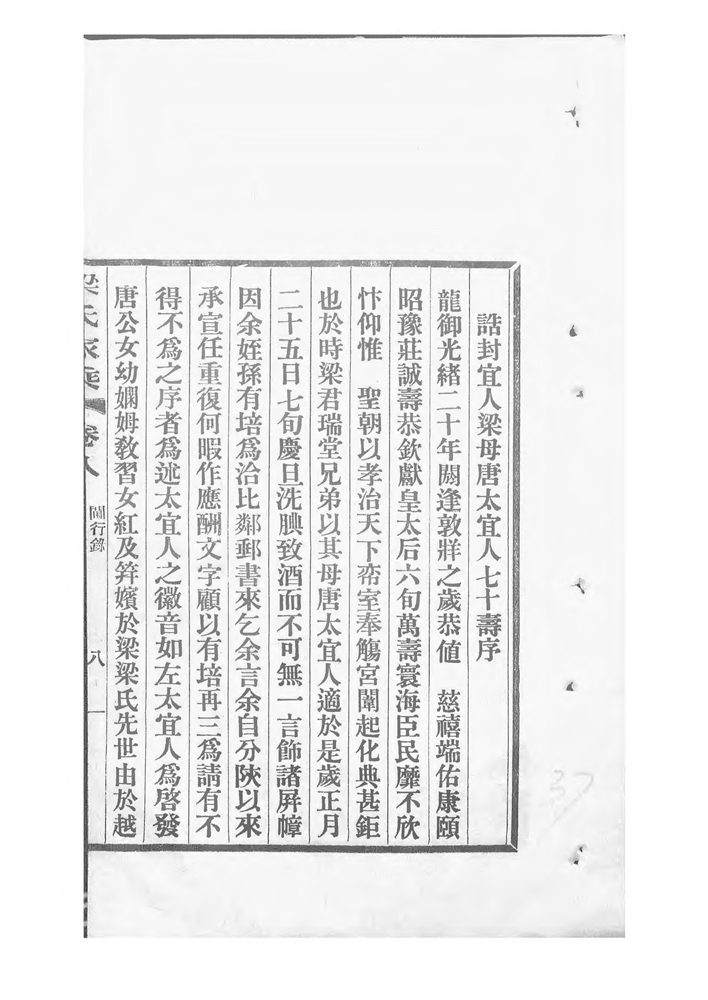 誥封宜人梁母唐太宜人七十壽序
龍御光緒二十年閼逢敦牂之歲恭值　慈禧端佑康頤
昭豫莊誠壽恭欽獻皇太后六旬萬壽寰海臣民靡不欣
忭仰惟　聖朝以孝治天下帟室奉觴宮闈起化典甚鉅
也於時梁君瑞堂兄弟以其母唐太宜人適於是歲正月
二十五日七旬慶旦洗腆致酒而不可無一言飾諸屏幛
因余姪孫有培爲洽比鄰郵書來乞余言余自分陜以來
承宣任重復何暇作應酬文字顧以有培再三爲請有不
得不爲之序者爲述太宜人之徽音如左太宜人爲啓發
唐公女幼嫻姆教習女紅及笄嬪於梁梁氏先世由於越
梁氏家乘 卷八 閫行錄 八
37